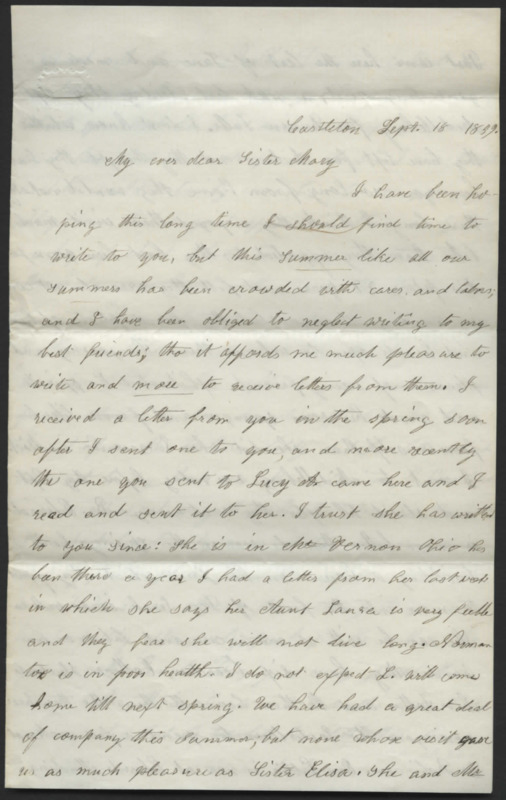 Castleton Sept. 18 1859.
My ever dear Sister Mary
I have been ho-
ping this long time I should find time to
write to you, but this summer like all our
summers has been crowded with cares and labors;
and I have been obliged to neglect writing to my
best friends; tho it affords me much pleasure to
write and more to receive letters from them. I
received a letter from you in the spring soon
after I sent one to you, and more recently
the one you sent to Lucy A came here and I
read and sent it to her. I trust she has written
to you since: she is in Mt Vernon Ohio has
been there a year I had a letter from her last week
in which she says her Aunt Laura is very feeble
and they fear she will not live long. Norman
too is in poor health. I do not expect L. will come
home till next spring. We have had a great deal
of company this summer, but none whose visit gave
us as much pleasure as Sister Eliza. She and Mr